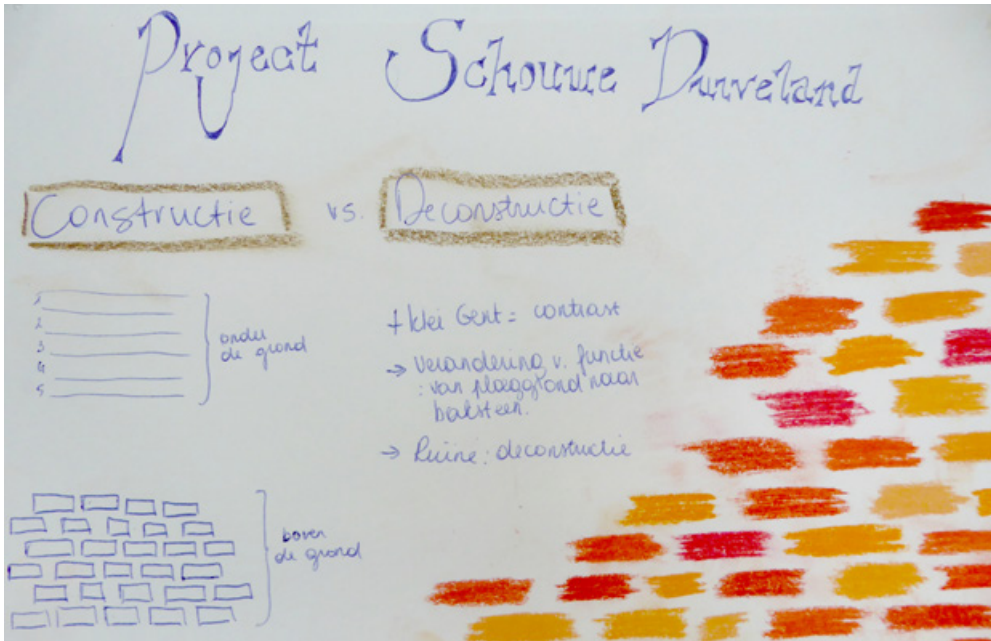 Project Schouwe Duiveland
Constructie vs. Deconstructie
1
2
3
4
5
onder
de grond
+ klei Gent = contrast
→ Verandering v. functie
: van ploeggrond naar
baksteen.
→ Ruïne : deconstructie
boven
de grond